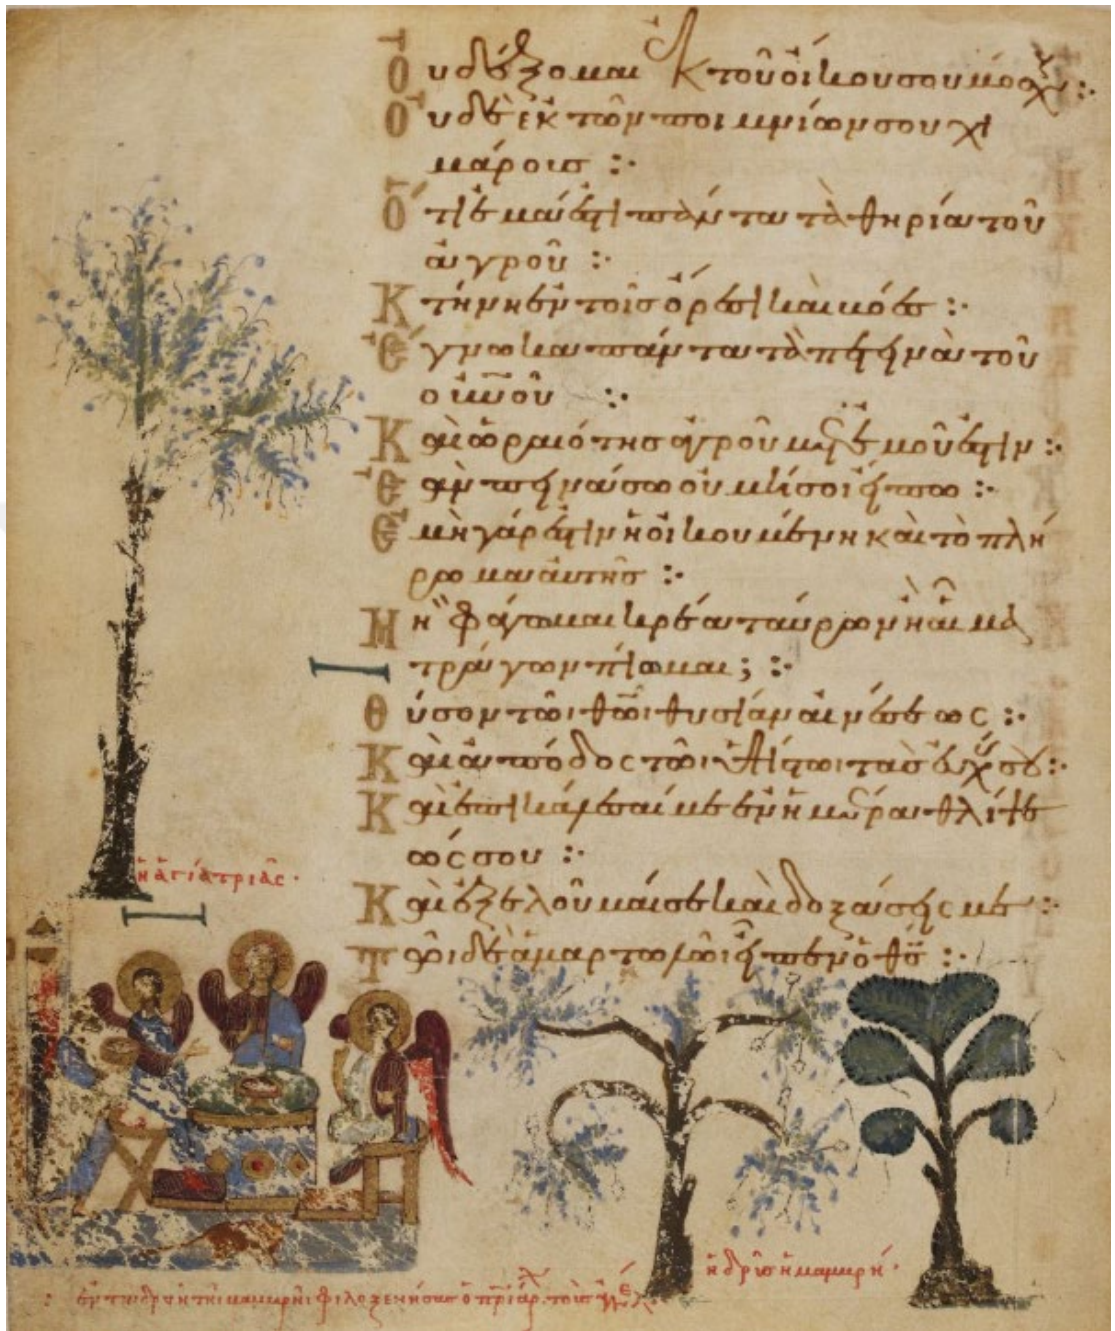 Οὐ δέξομαι ἐκ τοῦ οἴκου σου μόσχ :·
Οὐδὲ ἐκ τῶν ποιμνίων σου χι
μάρους :·
Ὅτι ἐμά ἐστι πάντα τὰ θηρία τοῦ
ἀγροῦ :·
Κτήνη ἐν τοῖς ὄρεσι καὶ βόες :·
Ἔγνωκα πάντα τὰ πετεινὰ τοῦ
οὐνοῦ :·
Καὶ ὡραιότης ἀγροῦ μετ ἐμοῦ ἐστιν :·
Ἐὰν πεινάσω οὐ μή σοι εἴπω :·
Ἐμὴ γάρ ἐστιν ἡ οἰκουμένη καὶ τὸ πλή
ρωμα αὐτῆς :·
Μὴ φάγωμαι κρέα ταύρων ἢ αἷμα
τράγων πίωμαι; :·
Θύσον τῶι θῶι θυσίαν αἰνέσεως :·
Καὶ ἀπόδος τῶι ὑψίστωι τὰς εὐχάς σου :·
Καὶ ἐπικάλεσαί με ἐν ἡμέρα θλίψε
ώς σου :·
ἡ ἁγία τριάς·
Καὶ ἐξελοῦμαί σε καὶ δοξάσεις με :·
Τῶι δὲ ἁμαρτωλῶι εἶπεν ὁ θς :·
ἡ δρῦς ἡ μαμβρή·
: ἐν τῆ δρυῒ τῆι μαμβρῆι φιλοξενήσας ὁ πριάρχ τοὺς ἀγγέλ·